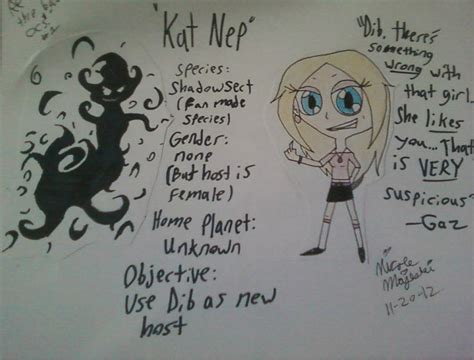 "Kat Nep"
Species:
Shadowsect
(fan made
species)
Gender:
none
(But host is
female)
Home Planet:
Unknown
Objective:
Use Dib as new
host
"Dib, there's
something
wrong with
that girl.
She likes
you...That
is VERY
suspicious"
-Gaz
Nicole
11-20-12